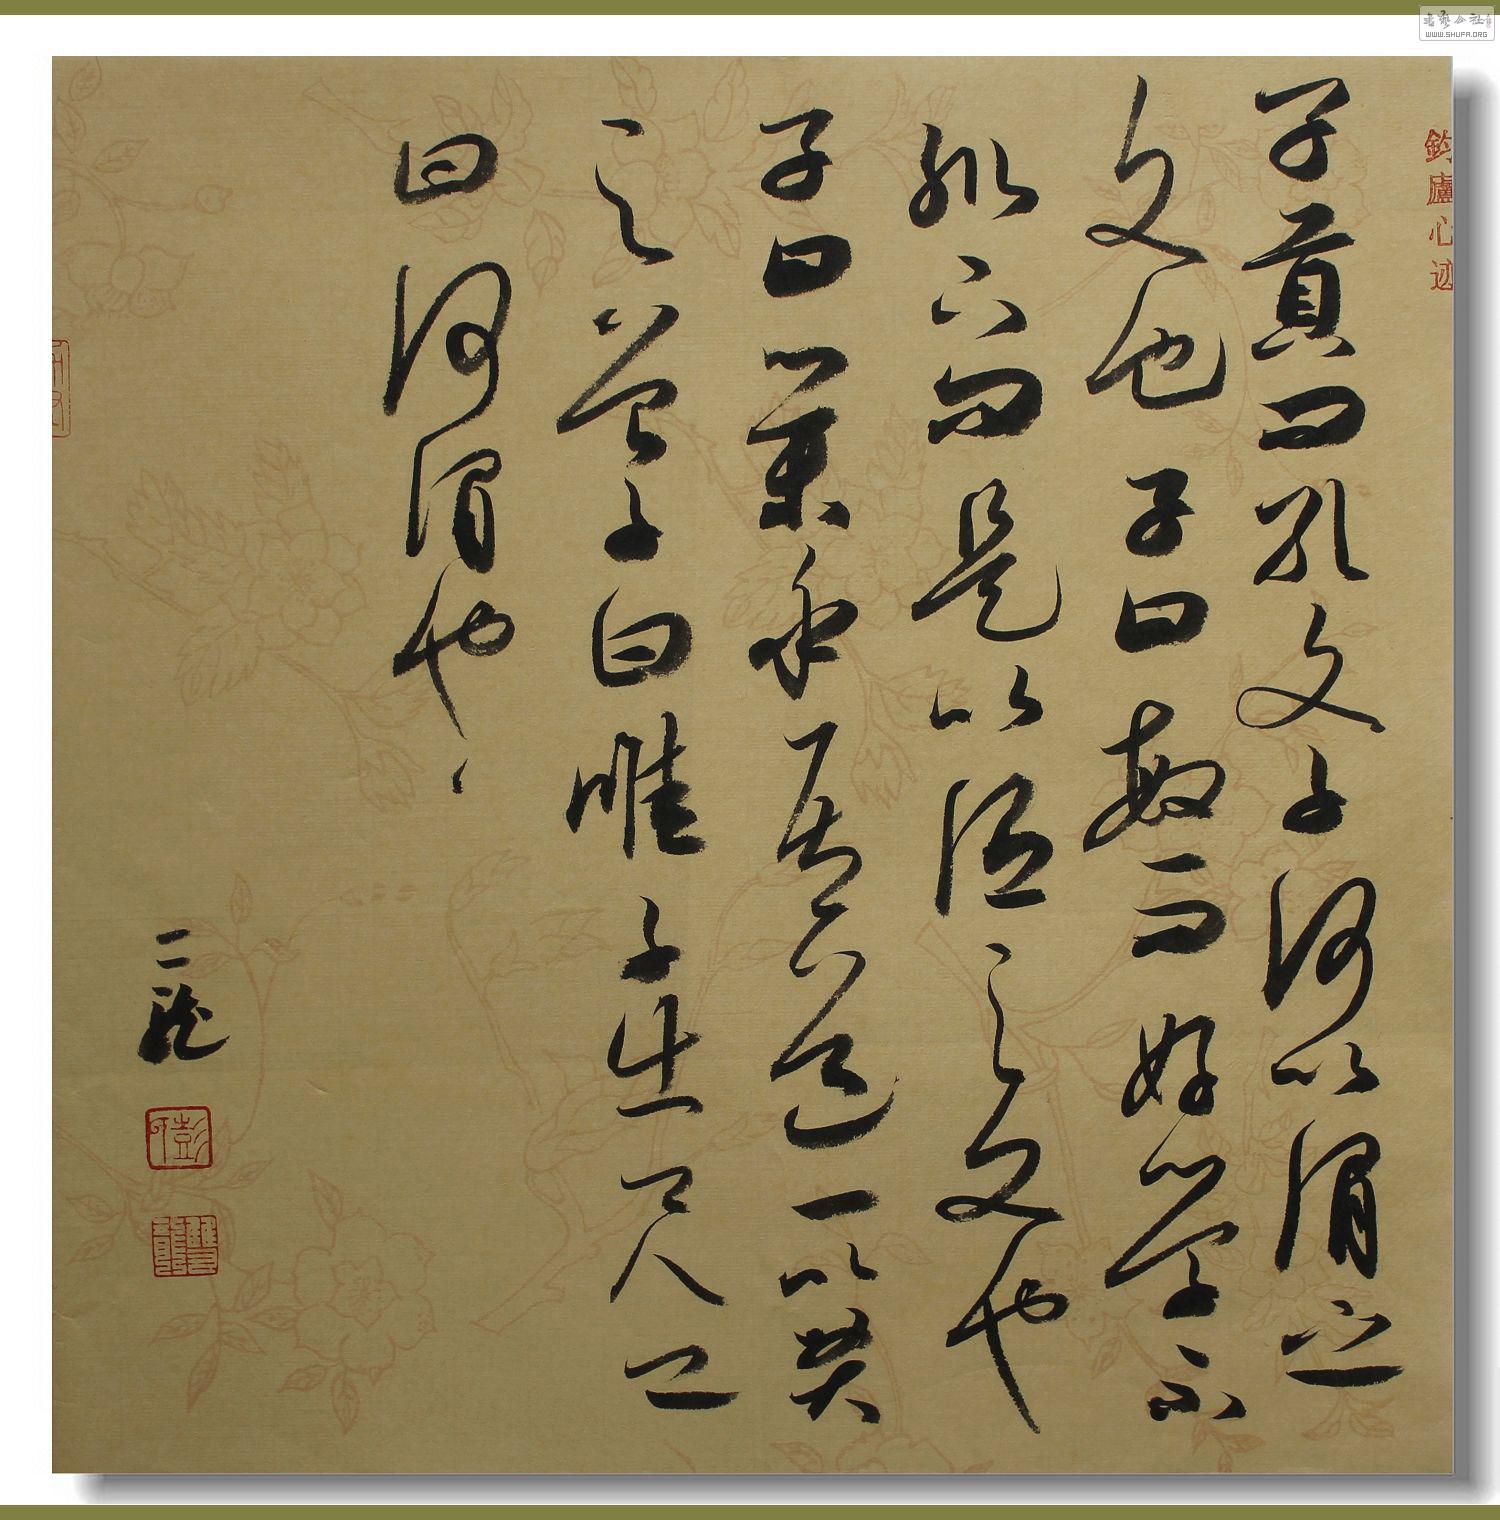 子貢曰孔文子何以謂之
文也子曰敏而好学不
耻下问是以謂之文也
子曰參乎吾道一以貫
之曾子曰唯子出门人问
曰何謂也
二龍
鈞廬心迹
彭
書藝公社
WWW.SHUFA.ORG